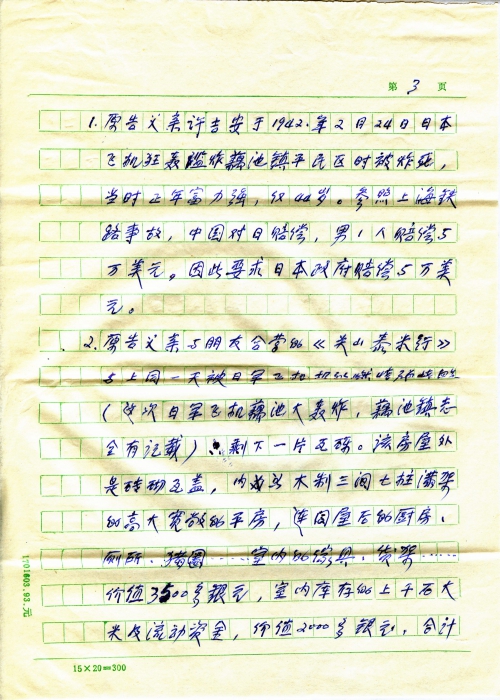 第 3 页
1. 原告父亲许吉安于1942.年2月24日日本
飞机狂轰滥炸藕池镇平民区时被炸死，
当时正年富力强，仅44岁。参照上海铁
路事故，中国对日赔偿，男1人赔偿5
万美元。因此要求日本政府赔偿5万美
元。
2. 原告父亲与朋友合营的《关山泰米行》
与上同一天被日军飞机
(这次日军飞机藕池大轰炸，藕池镇志
全有记载)，剩下一片瓦砾。该房屋外
是砖砌瓦盖，内为木制三间七柱满架
的高大宽敞的平房，连同屋后的厨房、
厕所、猪圈……室内的家具、货架……
价值3500号银元，室内库存的上千石大
米及流动资金，价值2000号银元，合计
1701603.93.元
15×20=300